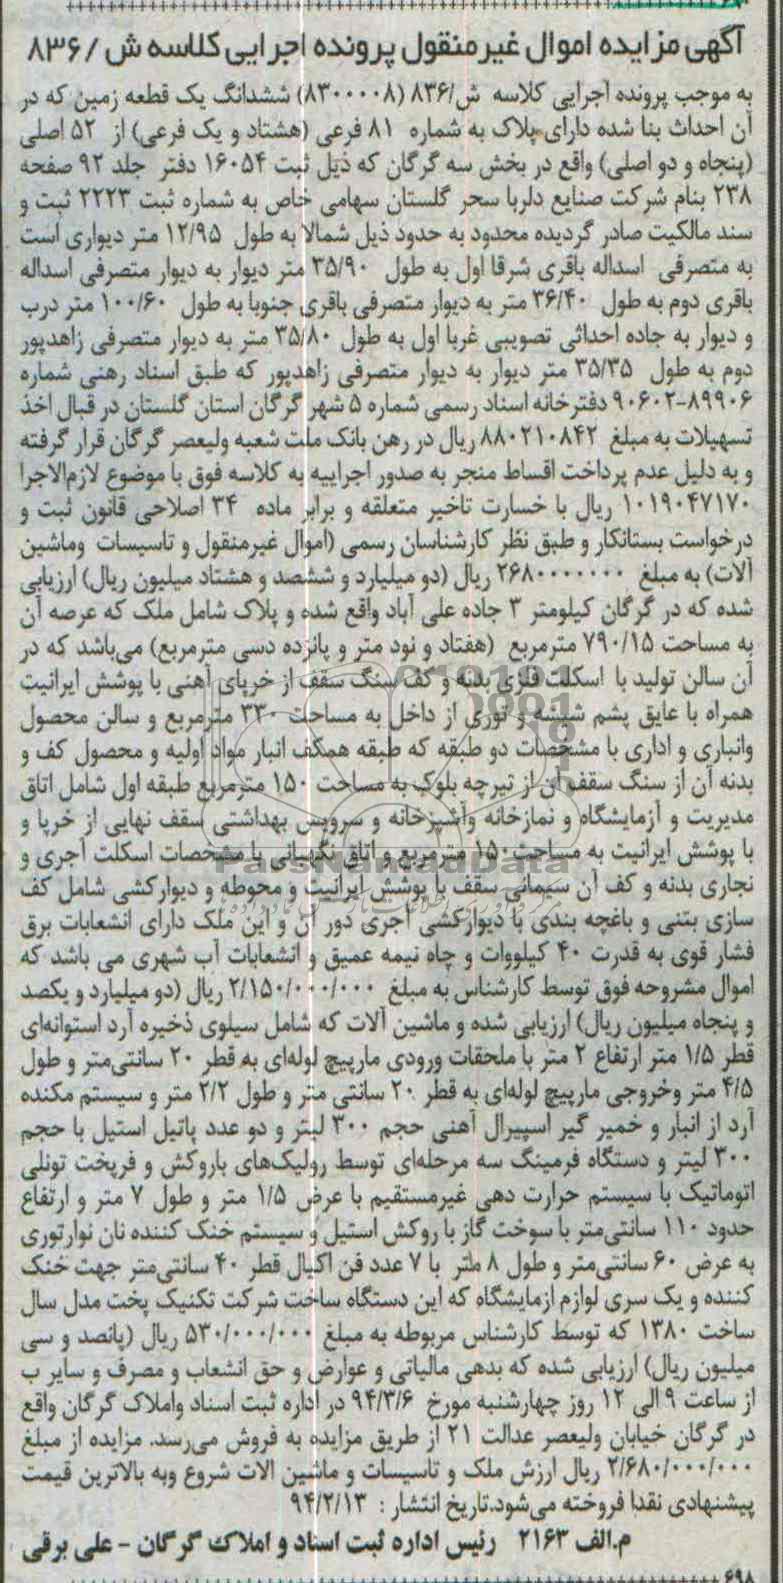 آگهی مزایده اموال غیرمنقول پرونده اجرایی کلاسه ش /۸۳۶
به موجب پرونده اجرایی کلاسه ش/۸۳۶ (۸۳۰۰۰۰۸) ششدانگ یک قطعه زمین که در
آن احداث بنا شده دارای پلاک به شماره ۸۱ فرعی (هشتاد و یک فرعی) از ۵۲ اصلی
(پنجاه و دو اصلی) واقع در بخش سه گرگان که ذیل ثبت ۱۶۰۵۴ دفتر جلد ۹۲ صفحه
۲۳۸ بنام شرکت صنایع دلربا سحر گلستان سهامی خاص به شماره ثبت ۲۲۲۳ ثبت و
سند مالکیت صادر گردیده محدود به حدود ذیل شمالا به طول ۱۲/۹۵ متر دیواری است
به متصرفی اسداله باقری شرقا اول به طول ۳۵/۹۰ متر دیوار به دیوار متصرفی اسداله
باقری دوم به طول ۳۶/۴۰ متر به دیوار متصرفی باقری جنوبا به طول ۱۰۰/۶۰ متر درب
و دیوار به جاده احداثی تصویبی غربا اول به طول ۳۵/۸۰ متر به دیوار متصرفی زاهدپور
دوم به طول ۳۵/۳۵ متر دیوار به دیوار متصرفی زاهدپور که طبق اسناد رهنی شماره
۸۹۹۰۶-۹۰۶۰۲ دفترخانه اسناد رسمی شماره ۵ شهر گرگان استان گلستان در قبال اخذ
تسهیلات به مبلغ ۸۸۰۲۱۰۸۴۲ ریال در رهن بانک ملت شعبه ولیعصر گرگان قرار گرفته
و به دلیل عدم پرداخت اقساط منجر به صدور اجراییه به کلاسه فوق با موضوع لازم‌الاجرا
۱۰۱۹۰۴۷۱۷۰ ریال با خسارت تاخیر متعلقه و برابر ماده ۳۴ اصلاحی قانون ثبت و
درخواست بستانکار و طبق نظر کارشناسان رسمی (اموال غیرمنقول و تاسیسات وماشین
آلات) به مبلغ ۲۶۸۰۰۰۰۰۰۰ ریال (دو میلیارد و ششصد و هشتاد میلیون ریال) ارزیابی
شده که در گرگان کیلومتر ۳ جاده علی آباد واقع شده و پلاک شامل ملک که عرصه آن
به مساحت ۷۹۰/۱۵ مترمربع (هفتاد و نود متر و پانزده دسی مترمربع) می‌باشد که در
آن سالن تولید با اسکلت فلزی بدنه و کف سنگ سقف از خرپای آهنی با پوشش ایرانیت
همراه با عایق پشم شیشه و توری از داخل به مساحت ۳۳۰ مترمربع و سالن محصول
وانباری و اداری با مشخصات دو طبقه که طبقه همکف انبار مواد اولیه و محصول کف و
بدنه آن از سنگ سقف آن از تیرچه بلوک به مساحت ۱۵۰ مترمربع طبقه اول شامل اتاق
مدیریت و آزمایشگاه و نمازخانه وآشپزخانه و سرویس بهداشتی سقف نهایی از خرپا و
با پوشش ایرانیت به مساحت ۱۵۰ مترمربع و اتاق نگهبانی با مشخصات اسکلت آجری و
نجاری بدنه و کف آن سیمانی سقف با پوشش ایرانیت و محوطه و دیوارکشی شامل کف
سازی بتنی و باغچه بندی با دیوارکشی آجری دور آن و این ملک دارای انشعابات برق
فشار قوی به قدرت ۴۰ کیلووات و چاه نیمه عمیق و انشعابات آب شهری می باشد که
اموال مشروحه فوق توسط کارشناس به مبلغ ۲/۱۵۰/۰۰۰/۰۰۰ ریال (دو میلیارد و یکصد
و پنجاه میلیون ریال) ارزیابی شده و ماشین آلات که شامل سیلوی ذخیره آرد استوانه‌ای
قطر ۱/۵ متر ارتفاع ۲ متر با ملحقات ورودی مارپیچ لوله‌ای به قطر ۲۰ سانتی‌متر و طول
۴/۵ متر وخروجی مارپیچ لوله‌ای به قطر ۲۰ سانتی متر و طول ۲/۲ متر و سیستم مکنده
آرد از انبار و خمیر گیر اسپیرال آهنی حجم ۳۰۰ لیتر و دو عدد پاتیل استیل با حجم
۳۰۰ لیتر و دستگاه فرمینگ سه مرحله‌ای توسط رولیک‌های باروکش و فرپخت تونلی
اتوماتیک با سیستم حرارت دهی غیرمستقیم با عرض ۱/۵ متر و طول ۷ متر و ارتفاع
حدود ۱۱۰ سانتی‌متر با سوخت گاز با روکش استیل و سیستم خنک کننده نان نوارتوری
به عرض ۶۰ سانتی‌متر و طول ۸ متر با ۷ عدد فن اکیال قطر ۴۰ سانتی‌متر جهت خنک
کننده و یک سری لوازم ازمایشگاه که این دستگاه ساخت شرکت تکنیک پخت مدل سال
ساخت ۱۳۸۰ که توسط کارشناس مربوطه به مبلغ ۵۳۰/۰۰۰/۰۰۰ ریال (پانصد و سی
میلیون ریال) ارزیابی شده که بدهی مالیاتی و عوارض و حق انشعاب و مصرف و سایر ب
از ساعت ۹ الی ۱۲ روز چهارشنبه مورخ ۹۴/۳/۶ در اداره ثبت اسناد واملاک گرگان واقع
در گرگان خیابان ولیعصر عدالت ۲۱ از طریق مزایده به فروش می‌رسد. مزایده از مبلغ
۲/۶۸۰/۰۰۰/۰۰۰ ریال ارزش ملک و تاسیسات و ماشین الات شروع وبه بالاترین قیمت
پیشنهادی نقدا فروخته می‌شود.تاریخ انتشار : ۹۴/۲/۱۳
م.الف ۲۱۶۳ رئیس اداره ثبت اسناد و املاک گرگان - علی برقی
۶۹۸
ParsNamadData